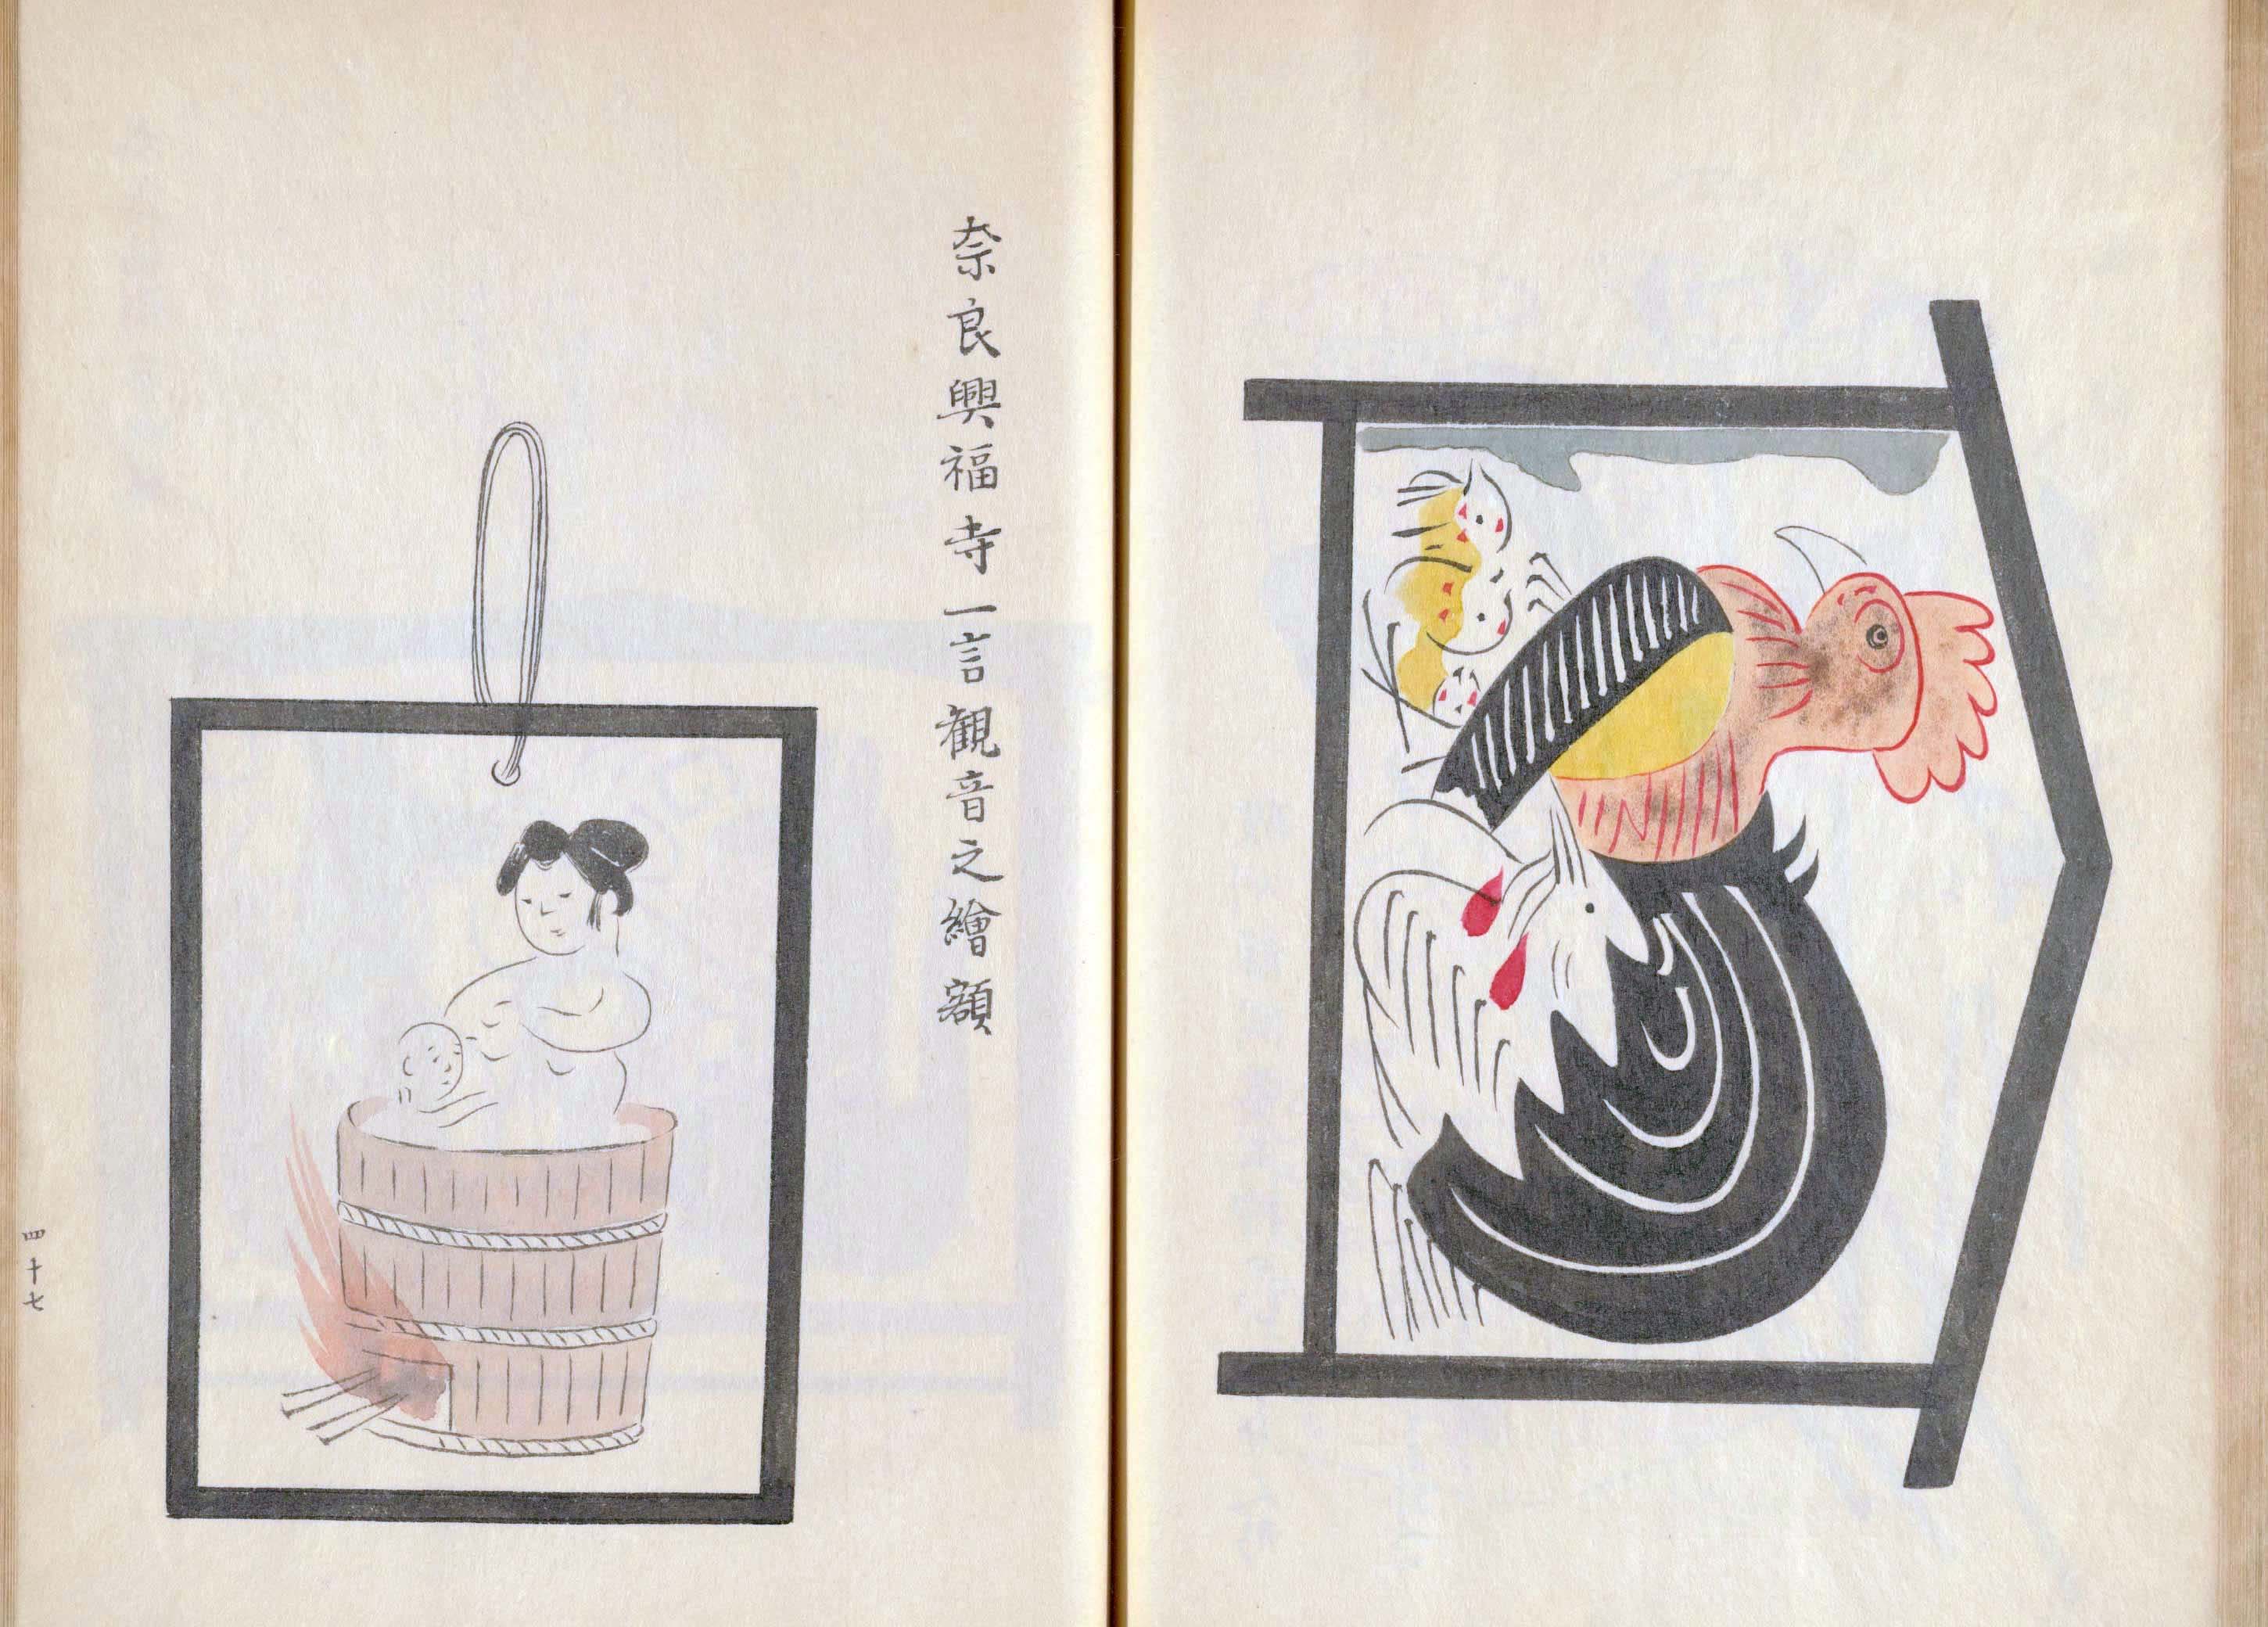 奈良興福寺一言観音之繪額
四十七